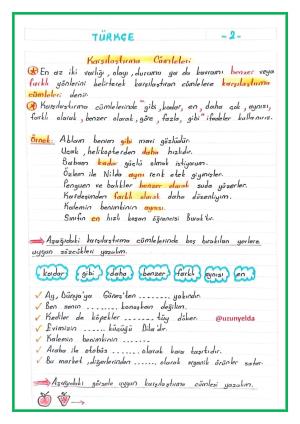 TÜRKÇE -2-
Karşılaştırma Cümleleri
En az iki varlığı, olayı, durumu ya da kavramı benzer veya
farklı yönlerini belirterek karşılaştıran cümlelere karşılaştırma
cümleleri denir.
Karşılaştırma cümlelerinde "gibi, kadar, en, daha çok, aynısı,
farklı olarak, benzer olarak, göre, fazla, gibi" ifadeler kullanılır.
Örnek: Ablam benim gibi mavi gözlüdür.
Uçak, helikopterden daha hızlıdır.
Babam kadar güçlü olmak istiyorum.
Özlem ile Nilda aynı renk etek giymişler.
Penguen ve balıklar benzer olarak suda yüzerler.
Kardeşimden farklı olarak daha düzenliyim.
Kalemin benimkinin aynısı.
Sınıfın en hızlı koşan öğrencisi Burak'tır.
Aşağıdaki karşılaştırma cümlelerinde boş bırakılan yerlere
uygun sözcükleri yazalım.
kadar gibi daha benzer farklı aynısı en
Ay, Dünya'ya Güneş'ten ........ yakındır.
Ben senin ........ konuşkan değilim.
Kediler de köpekler ........ tüy döker. @uzunyelda
Evimizin ....... küçüğü Bila'dır.
Kalemin benimkinin .......
Araba ile otobüs ....... olarak kara taşıtıdır.
Bu market, diğerlerinden ...... olarak organik ürünler satar.
Aşağıdaki görsele uygun karşılaştırma cümlesi yazalım.